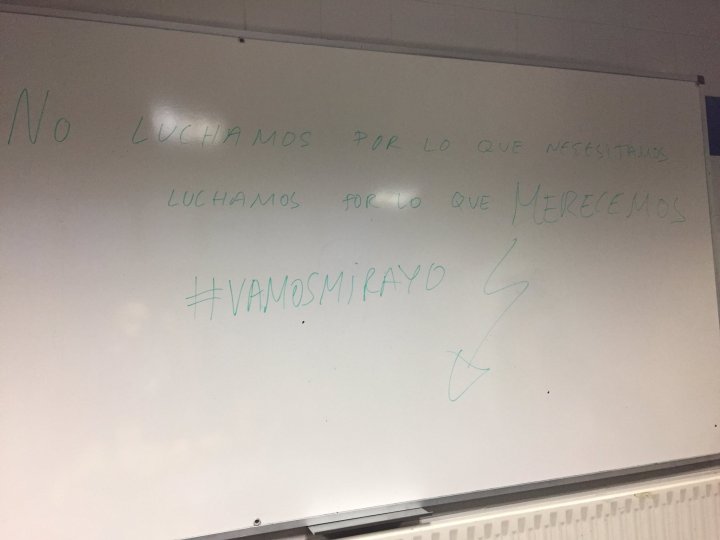 No LUCHAMOS POR LO QUE NESESITAMOS
LUCHAMOS POR LO QUE MERECEMOS
#VAMOSMIRAYO